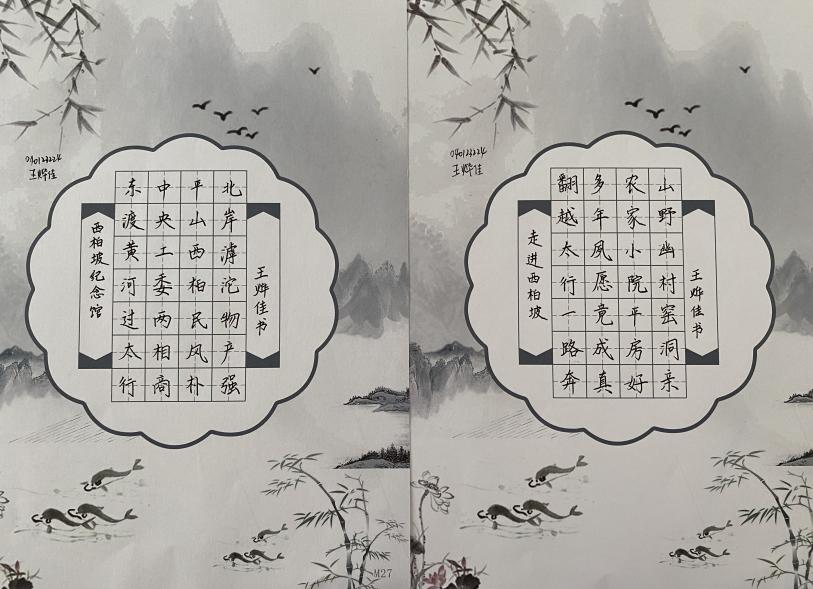 040123224
王烨佳
西柏坡纪念馆
东渡黄河过太行
中央工委两相商
平山西柏民风朴
北岸滹沱物产强
王烨佳书
M27
040123224
王烨佳
走进西柏坡
翻越太行一路奔
多年夙愿竟成真
农家小院平房好
山野幽村窑洞亲
王烨佳书